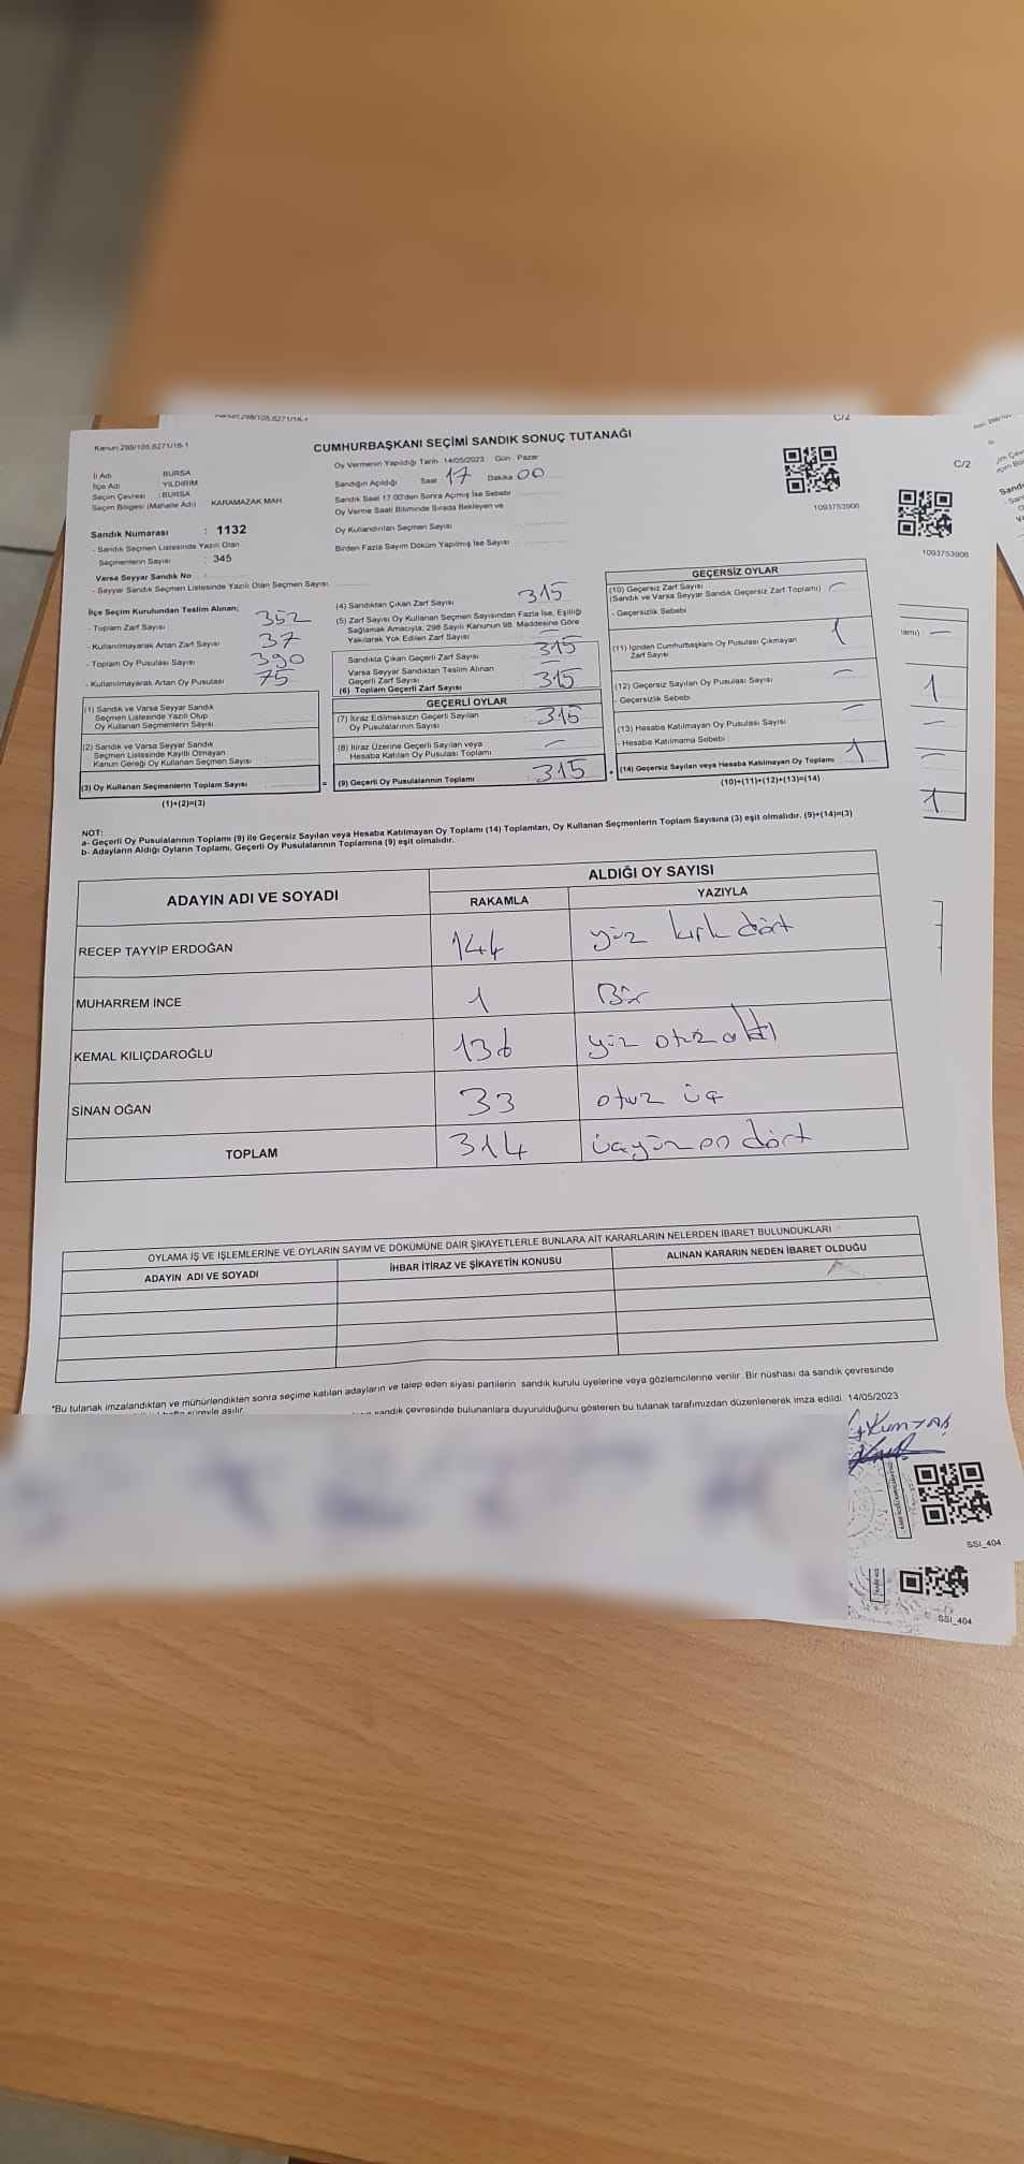 Kanun:298/105,6271/16-1
C/2
CUMHURBAŞKANI SEÇİMİ SANDIK SONUÇ TUTANAĞI
C/2
İl Adı : BURSA
İlçe Adı : YILDIRIM
Seçim Çevresi : BURSA
Seçim Bölgesi (Mahalle Adı) : KARAMAZAK MAH.
Oy Vermenin Yapıldığı Tarih : 14/05/2023 Gün : Pazar
Sandığın Açıldığı Saat 17 Dakika 00
Sandık Saat 17.00'den Sonra Açmış İse Sebebi
Oy Verme Saati Bitiminde Sırada Bekleyen ve
Oy Kullandırılan Seçmen Sayısı
Birden Fazla Sayım Döküm Yapılmış İse Sayısı
1093753906
1093753906
Sandık Numarası : 1132
- Sandık Seçmen Listesinde Yazılı Olan
Seçmenlerin Sayısı : 345
Varsa Seyyar Sandık No :
- Seyyar Sandık Seçmen Listesinde Yazılı Olan Seçmen Sayısı
İlçe Seçim Kurulundan Teslim Alınan;
- Toplam Zarf Sayısı 352
- Kullanılmayarak Artan Zarf Sayısı 37
- Toplam Oy Pusulası Sayısı 390
- Kullanılmayarak Artan Oy Pusulası 75
(1) Sandık ve Varsa Seyyar Sandık
Seçmen Listesinde Yazılı Olup
Oy Kullanan Seçmenlerin Sayısı
(2) Sandık ve Varsa Seyyar Sandık
Seçmen Listesinde Kayıtlı Olmayan
Kanun Gereği Oy Kullanan Seçmen Sayısı
(3) Oy Kullanan Seçmenlerin Toplam Sayısı
(1)+(2)=(3)
=
(4) Sandıktan Çıkan Zarf Sayısı 315
(5) Zarf Sayısı Oy Kullanan Seçmen Sayısından Fazla İse, Eşitliği
Sağlamak Amacıyla, 298 Sayılı Kanunun 98. Maddesine Göre
Yakılarak Yok Edilen Zarf Sayısı —
Sandıkta Çıkan Geçerli Zarf Sayısı 315
Varsa Seyyar Sandıktan Teslim Alınan
Geçerli Zarf Sayısı —
(6) Toplam Geçerli Zarf Sayısı 315
GEÇERLİ OYLAR
(7) İtiraz Edilmeksizin Geçerli Sayılan
Oy Pusulalarının Sayısı 315
(8) İtiraz Üzerine Geçerli Sayılan veya
Hesaba Katılan Oy Pusulası Toplamı —
(9) Geçerli Oy Pusulalarının Toplamı 315
+
GEÇERSİZ OYLAR
(10) Geçersiz Zarf Sayısı
(Sandık ve Varsa Seyyar Sandık Geçersiz Zarf Toplamı) —
- Geçersizlik Sebebi
(11) İçinden Cumhurbaşkanı Oy Pusulası Çıkmayan
Zarf Sayısı 1
(12) Geçersiz Sayılan Oy Pusulası Sayısı —
- Geçersizlik Sebebi
(13) Hesaba Katılmayan Oy Pusulası Sayısı —
- Hesaba Katılmama Sebebi :
(14) Geçersiz Sayılan veya Hesaba Katılmayan Oy Toplamı 1
(10)+(11)+(12)+(13)=(14)
—
1
—
—
1
NOT:
a- Geçerli Oy Pusulalarının Toplamı (9) ile Geçersiz Sayılan veya Hesaba Katılmayan Oy Toplamı (14) Toplamları, Oy Kullanan Seçmenlerin Toplam Sayısına (3) eşit olmalıdır. (9)+(14)=(3)
b- Adayların Aldığı Oyların Toplamı, Geçerli Oy Pusulalarının Toplamına (9) eşit olmalıdır.
ADAYIN ADI VE SOYADI
ALDIĞI OY SAYISI
RAKAMLA YAZIYLA
RECEP TAYYİP ERDOĞAN 144 yüz kırk dört
MUHARREM İNCE 1 Bir
KEMAL KILIÇDAROĞLU 136 yüz otuz altı
SİNAN OĞAN 33 otuz üç
TOPLAM 314 üçyüz on dört
OYLAMA İŞ VE İŞLEMLERİNE VE OYLARIN SAYIM VE DÖKÜMÜNE DAİR ŞİKAYETLERLE BUNLARA AİT KARARLARIN NELERDEN İBARET BULUNDUKLARI
ADAYIN ADI VE SOYADI İHBAR İTİRAZ VE ŞİKAYETİN KONUSU ALINAN KARARIN NEDEN İBARET OLDUĞU
*Bu tutanak imzalandıktan ve mühürlendikten sonra seçime katılan adayların ve talep eden siyasi partilerin sandık kurulu üyelerine veya gözlemcilerine verilir. Bir nüshası da sandık çevresinde
süreyle asılır.
sandık çevresinde bulunanlara duyurulduğunu gösteren bu tutanak tarafımızdan düzenlenerek imza edildi. 14/05/2023
SSI_404
SSI_404